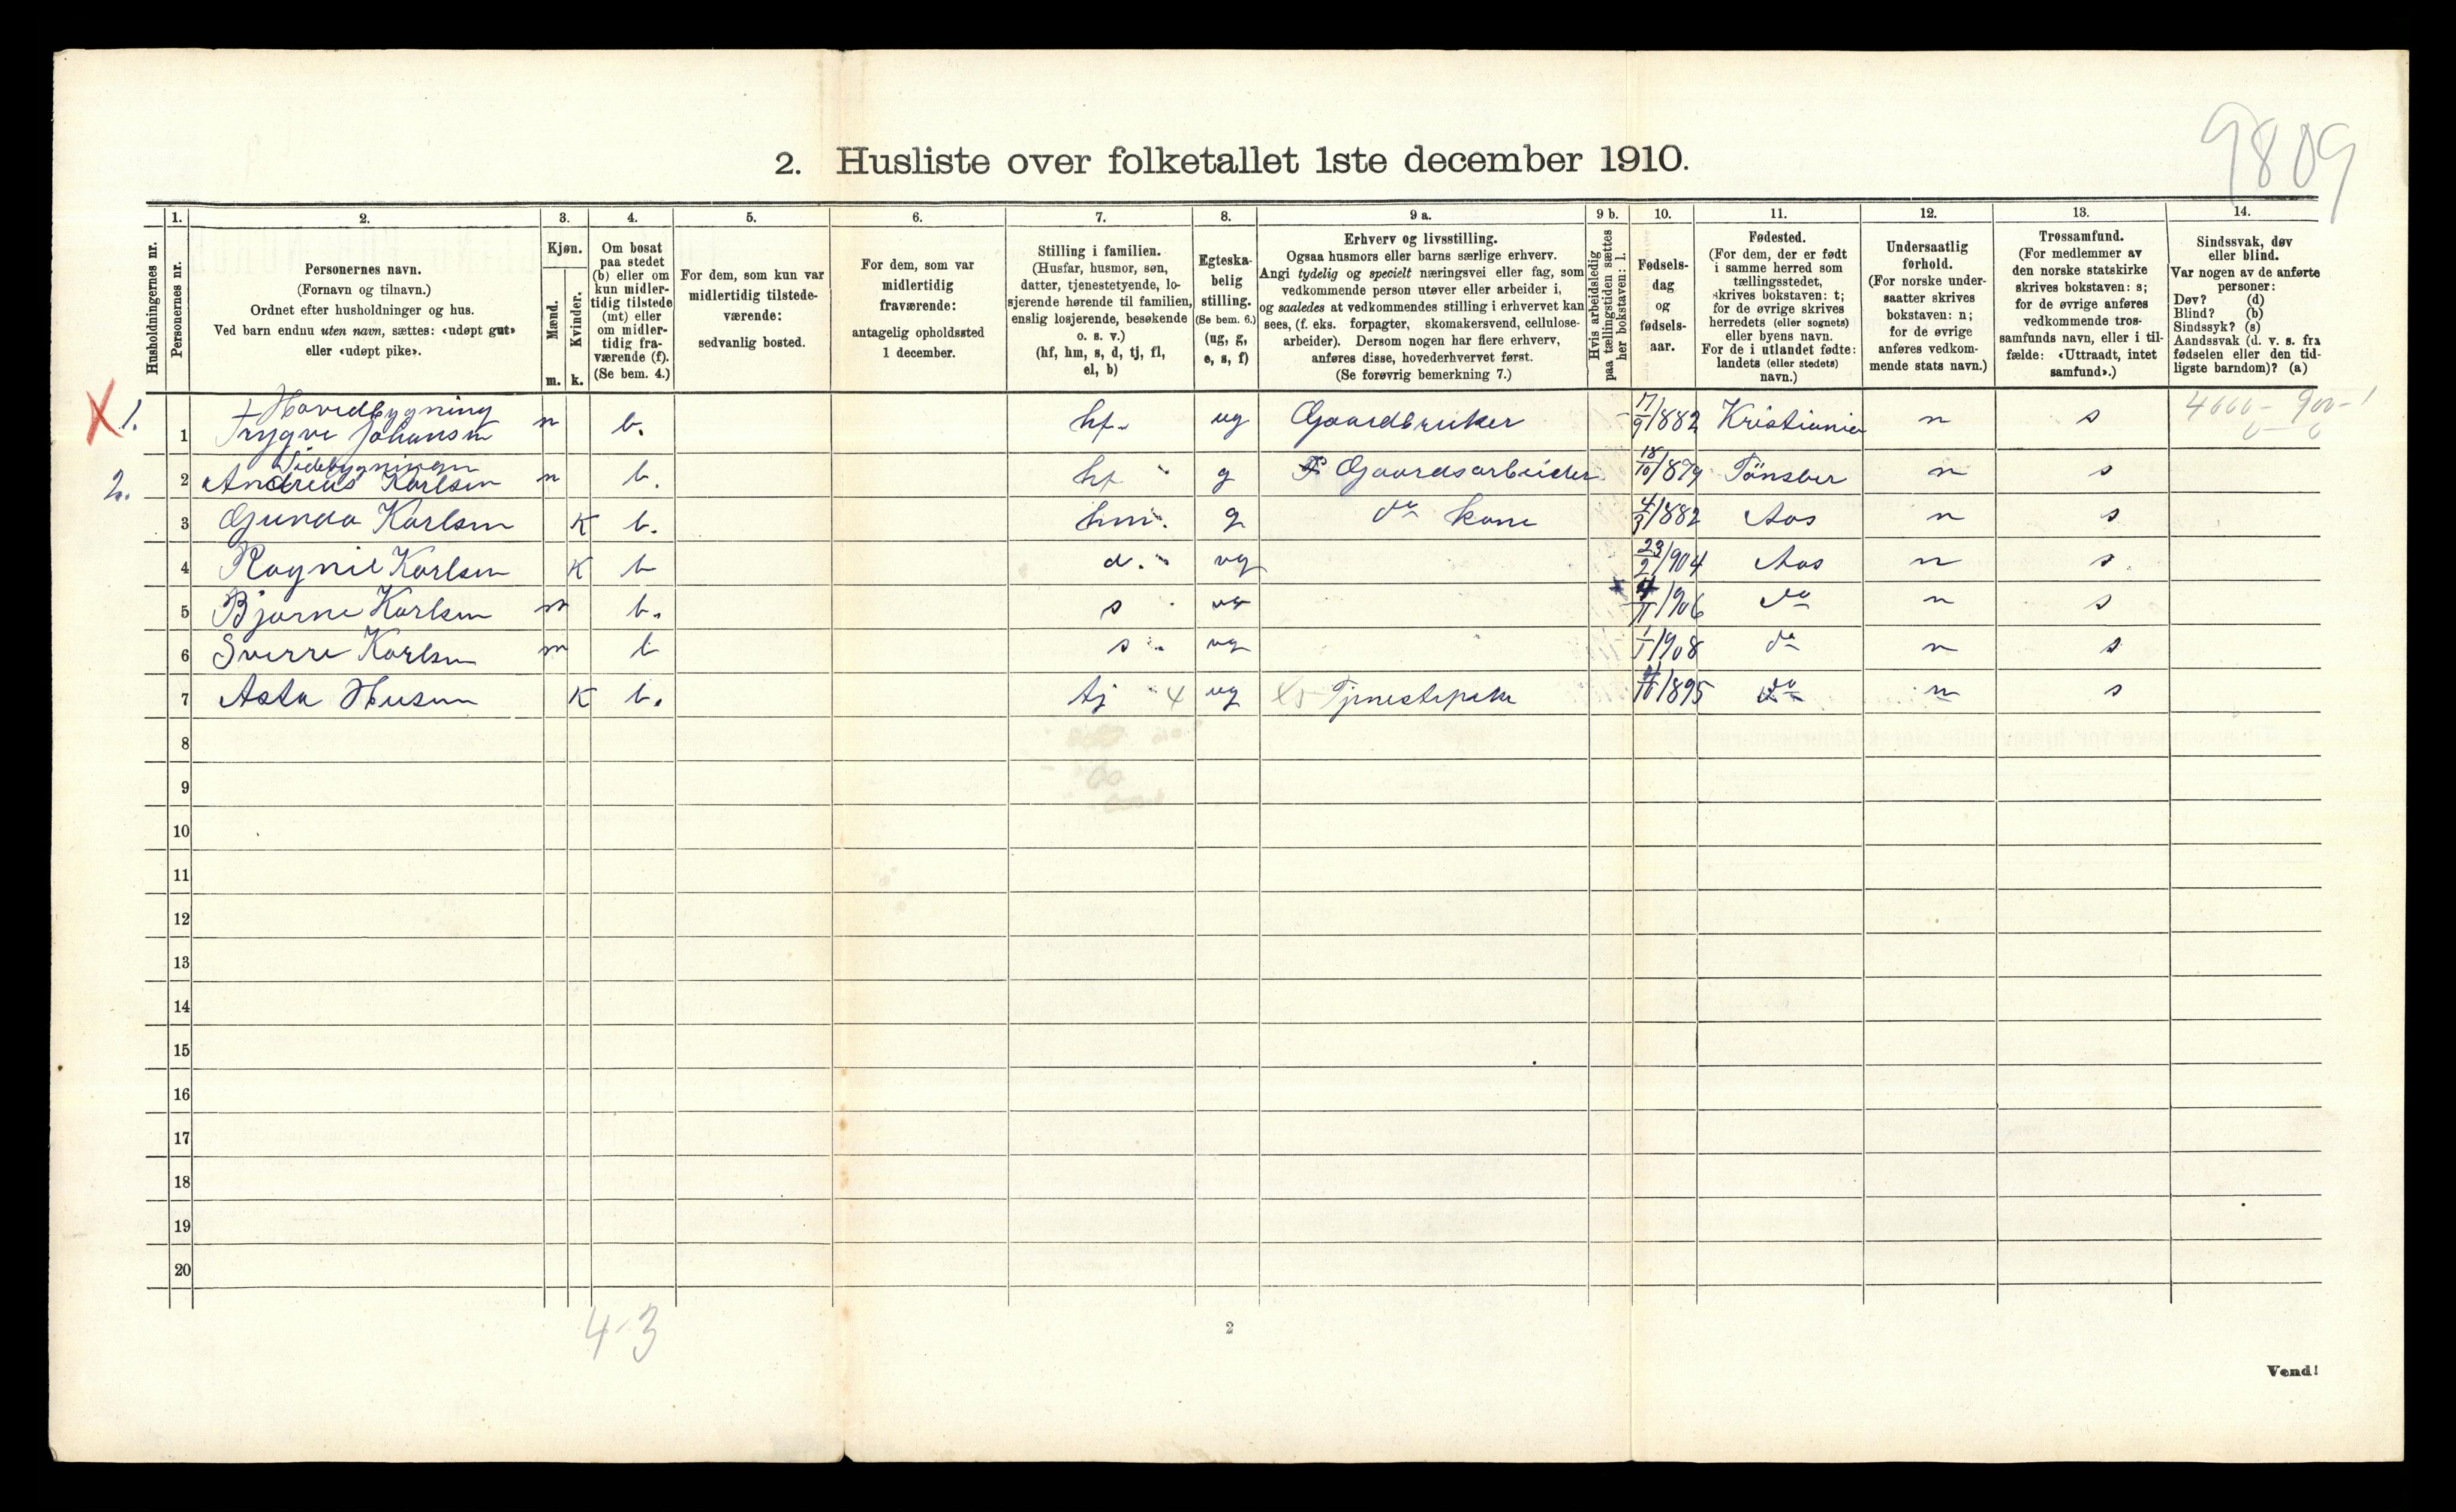 9809
2. Husliste over folketallet 1ste december 1910.
Husholdningernes nr.
1.
Personernes nr.
2.
Personernes navn.
(Fornavn og tilnavn.)
Ordnet efter husholdninger og hus.
Ved barn endnu uten navn, sættes: «udøpt gut»
eller «udøpt pike».
3.
Kjøn.
Mænd.
m.
Kvinder.
k.
4.
Om bosat
paa stedet
(b) eller om
kun midler-
tidig tilstede
(mt) eller
om midler-
tidig fra-
værende (f).
(Se bem. 4.)
5.
For dem, som kun var
midlertidig tilstede-
værende:
sedvanlig bosted.
6.
For dem, som var
midlertidig
fraværende:
antagelig opholdssted
1 december.
7.
Stilling i familien.
(Husfar, husmor, søn,
datter, tjenestetyende, lo-
sjerende hørende til familien,
enslig losjerende, besøkende
o. s. v.)
(hf, hm, s, d, tj, fl,
el, b)
8.
Egteska-
belig
stilling.
(Se bem. 6.)
(ug, g,
e, s, f)
9 a.
Erhverv og livsstilling.
Ogsaa husmors eller barns særlige erhverv.
Angi tydelig og specielt næringsvei eller fag, som
vedkommende person utøver eller arbeider i,
og saaledes at vedkommendes stilling i erhvervet kan
sees, (f. eks. forpagter, skomakersvend, cellulose-
arbeider). Dersom nogen har flere erhverv,
anføres disse, hovederhvervet først.
(Se forøvrig bemerkning 7.)
9 b.
Hvis arbeidsledig
paa tællingstiden sættes
her bokstaven: l.
10.
Fødsels-
dag
og
fødsels-
aar.
11.
Fødested.
(For dem, der er født
i samme herred som
tællingsstedet,
skrives bokstaven: t;
for de øvrige skrives
herredets (eller sognets)
eller byens navn.
For de i utlandet fødte:
landets (eller stedets)
navn.)
12.
Undersaatlig
forhold.
(For norske under-
saatter skrives
bokstaven: n;
for de øvrige
anføres vedkom-
mende stats navn.)
13.
Trossamfund.
(For medlemmer av
den norske statskirke
skrives bokstaven: s;
for de øvrige anføres
vedkommende tros-
samfunds navn, eller i til-
fælde: «Uttraadt, intet
samfund».)
14.
Sindssvak, døv
eller blind.
Var nogen av de anførte
personer:
Døv? (d)
Blind? (b)
Sindssyk? (s)
Aandssvak (d. v. s. fra
fødselen eller den tid-
ligste barndom)? (a)
Hovedbygning
X 1. 1 Trygve Johansen m b. hf. ug Gaardbruker 17/9/882 Kristiania n s 4000 - 900 - 1
0 - 0
Sidebygningen
2. 2 Andreas Karlsen m b. hf g Gaardsarbeider 18/10/879 Tönsber n s
3 Gunda Karlsen K b. hm. g do kone 4/3/882 Aas n s
4 Ragnil Karlsen K b d. ug 23/2/904 Aas n s
5 Bjarne Karlsen m b. s ug 4/11/906 do n s
6 Sverre Karlsen m b s ug 1/1/908 do n s
7 Asta Husum K b. tj 4 ug Tjenestepike 4/10/895 do n s
8
9
10
11
12
13
14
15
16
17
18
19
20
4-3
2
Vend!